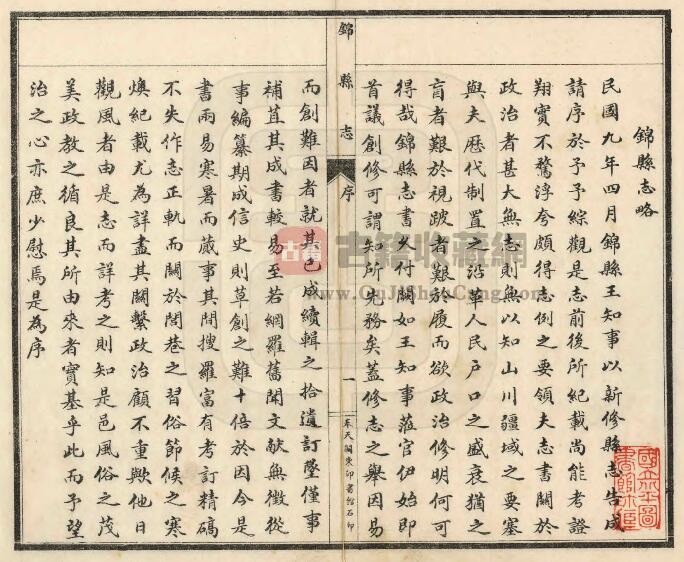 錦縣志略
民國九年四月錦縣王知事以新修縣志告成
請序於予予綜觀是志前後所紀載尚能考證
翔實不騖浮夸頗得志例之要領夫志書關於
政治者甚大無志則無以知山川疆域之要塞
與夫歷代制置之沿革人民戶口之盛衰猶之
盲者艱於視跛者艱於履而欲政治修明何可
得哉錦縣志書久付闕如王知事蒞官伊始即
首議創修可謂知所先務矣蓋修志之舉因易
錦縣志
序
一
奉天關東印書館石印
而創難因者就其已成續輯之拾遺訂墜僅事
補苴其成書較易至若網羅舊聞文獻無徵從
事編纂期成信史則草創之難十倍於因今是
書兩易寒暑而蕆事其間搜羅富有考訂精碻
不失作志正軌而關於閭巷之習俗節候之寒
燠紀載尤為詳盡其關繫政治顧不重歟他日
觀風者由是志而詳考之則知是邑風俗之茂
美政教之循良其所由來者實基乎此而予望
治之心亦庶少慰焉是為序
古籍
古籍收藏網
www.GuJiShouCang.com